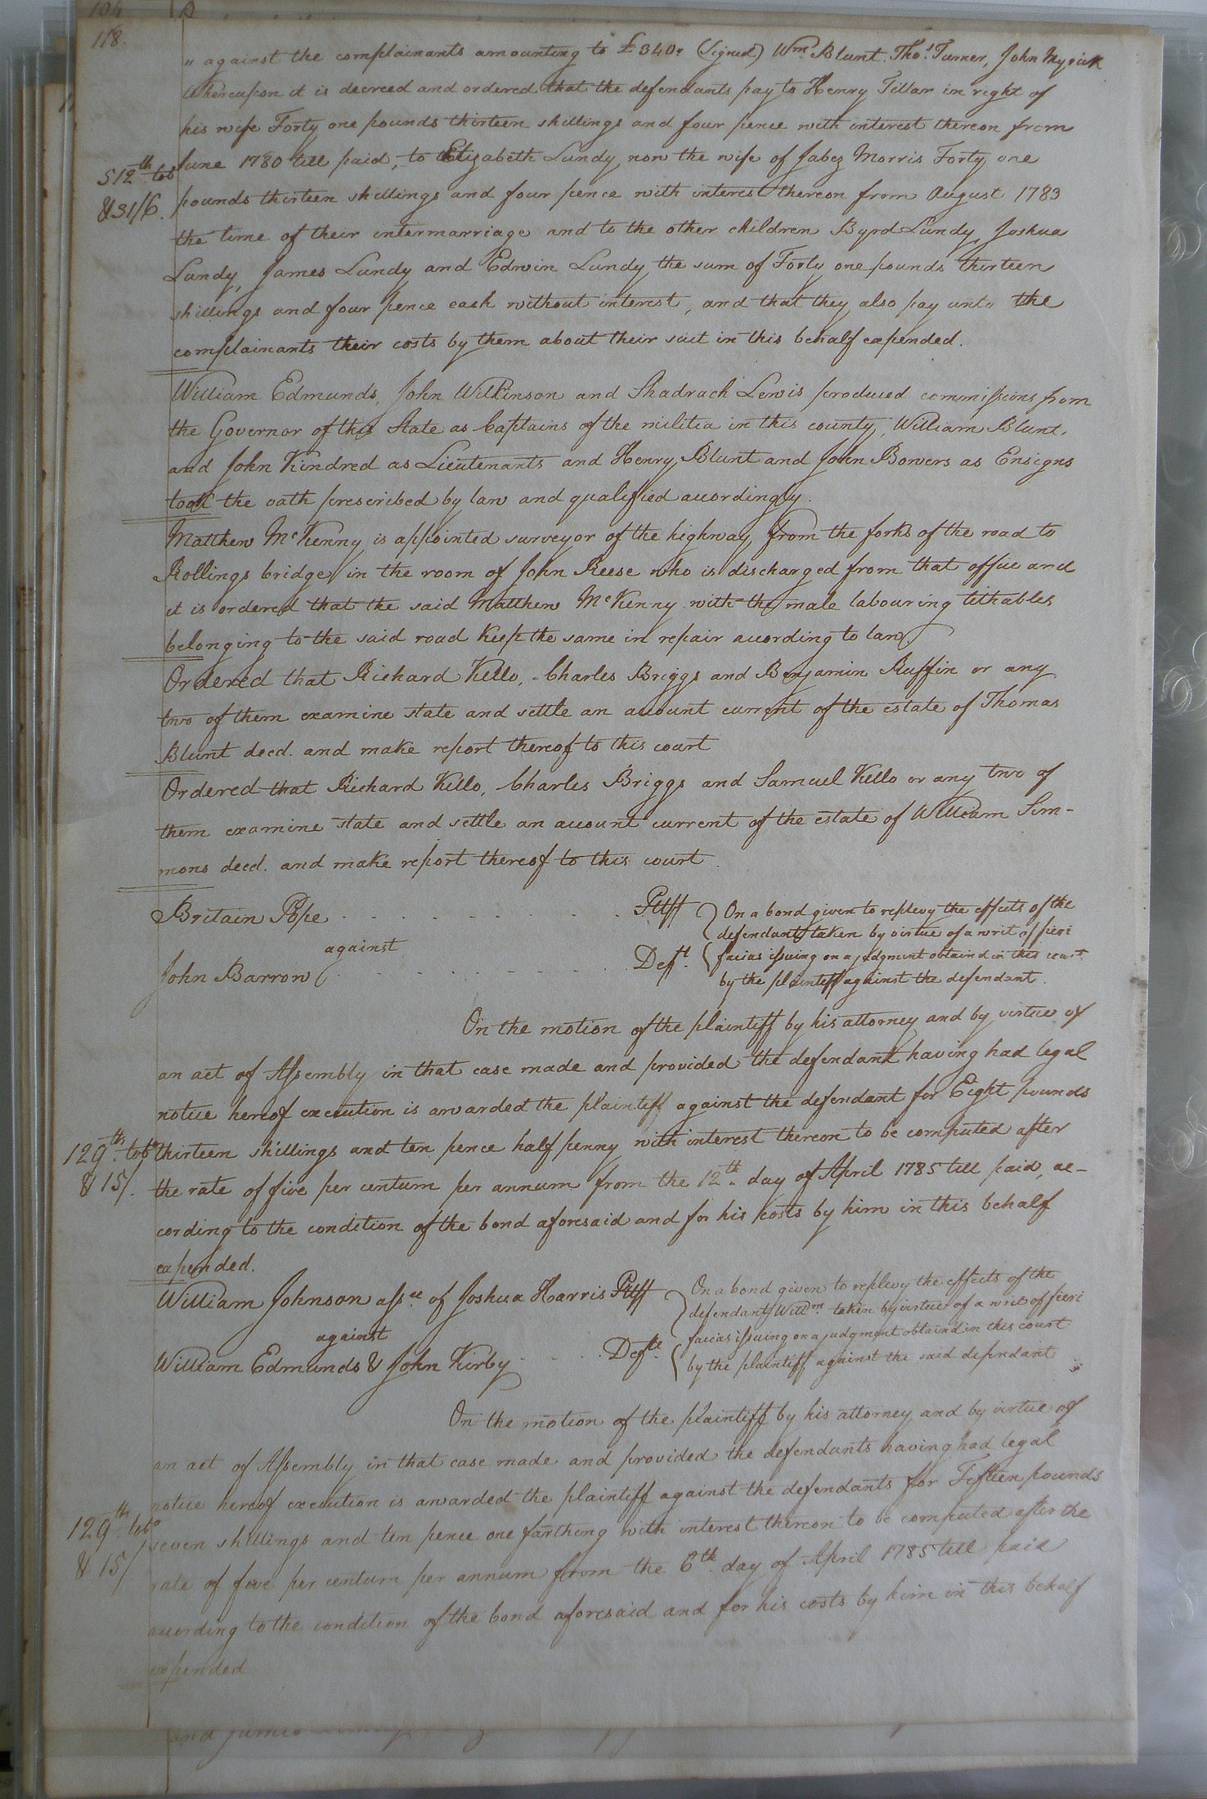 118.
" against the complainants amounting to £340. (Signed) Wm. Blunt. Thos. Turner, John Myrick
Whereupon it is decreed and ordered that the defendants pay to Henry Tillar in right of
his wife Forty one pounds thirteen shillings and four pence with interest thereon from
June 1780 till paid, to Elizabeth Lundy now the wife of Jabez Morris Forty one
512th. tob
& 31/6.
pounds thirteen shillings and four pence with interest thereon from August 1783
the time of their intermarriage and to the other children Byrd Lundy, Joshua
Lundy, James Lundy and Edwin Lundy the sum of Forty one pounds thirteen
shillings and four pence each without interest, and that they also pay unto the
complainants their costs by them about their suit in this behalf expended.
William Edmunds, John Wilkinson and Shadrach Lewis produced commissions from
the Governor of this State as Captains of the militia in this county, William Blunt,
and John Kindred as Lieutenants and Henry Blunt and John Bowers as Ensigns
took the oath prescribed by law and qualified accordingly.
Matthew McKenny is appointed surveyor of the highway, from the forks of the road to
Rollings bridge in the room of John Reese who is discharged from that office and
it is ordered that the said Matthew McKenny with the male labouring tithables
belonging to the said road keep the same in repair according to law.
Ordered that Richard Kello, Charles Briggs and Benjamin Ruffin or any
two of them examine state and settle an account current of the estate of Thomas
Blunt decd. and make report thereof to this court
Ordered that Richard Kello, Charles Briggs and Samuel Kello or any two of
them examine state and settle an account current of the estate of William Sim-
mons decd. and make report thereof to this court.
Britain Pope . . . . . . . . . . Pltff
against
John Barrow . . . . . . . . . . Deft.
On a bond given to replevy the effects of the
defendants taken by virtue of a writ of fieri
facias issuing on a judgment obtaind in this court
by the plaintiff against the defendant.
On the motion of the plaintiff by his attorney and by virtue of
an act of Assembly in that case made and provided the defendant having had legal
notice hereof execution is awarded the plaintiff against the defendant for Eight pounds
thirteen shillings and ten pence half penny with interest thereon to be computed after
129th. tobo
& 15/.
the rate of five per centum per annum from the 12th. day of April 1785 till paid, ac-
cording to the condition of the bond aforesaid and for his costs by him in this behalf
expended.
William Johnson assee. of Joshua Harris Pltff
against
William Edmunds & John Kirby . . . . Defts.
On a bond given to replevy the effects of the
defendant Willm. taken by virtue of a writ of fieri
facias issuing on a judgment obtaind in this court
by the plaintiff against the said defendant
On the motion of the plaintiff by his attorney and by virtue of
an act of Assembly in that case made and provided the defendants having had legal
notice hereof execution is awarded the plaintiff against the defendants for Fifteen pounds
129th. tobo
& 15/
seven shillings and ten pence one farthing with interest thereon to be computed after the
rate of five per centum per annum from the 6th. day of April 1785 till paid
according to the condition of the bond aforesaid and for his costs by him in this behalf
expended
and James